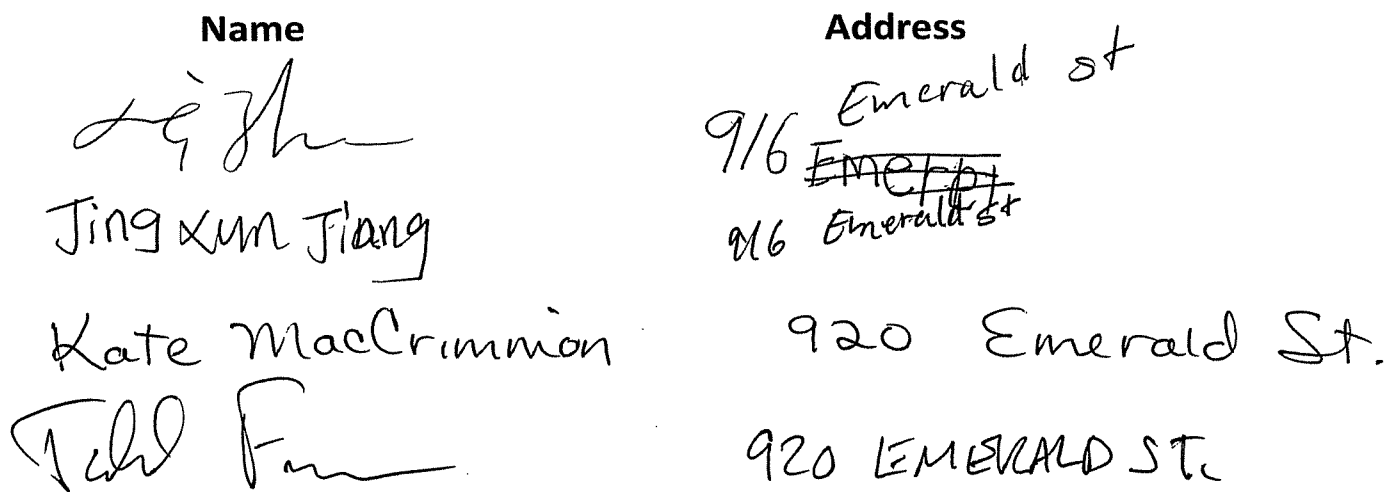 Name Address
916 Emerald st
Jing Xun Jiang 916 Emerald st
Kate MacCrimmon 920 Emerald St.
920 EMERALD ST.